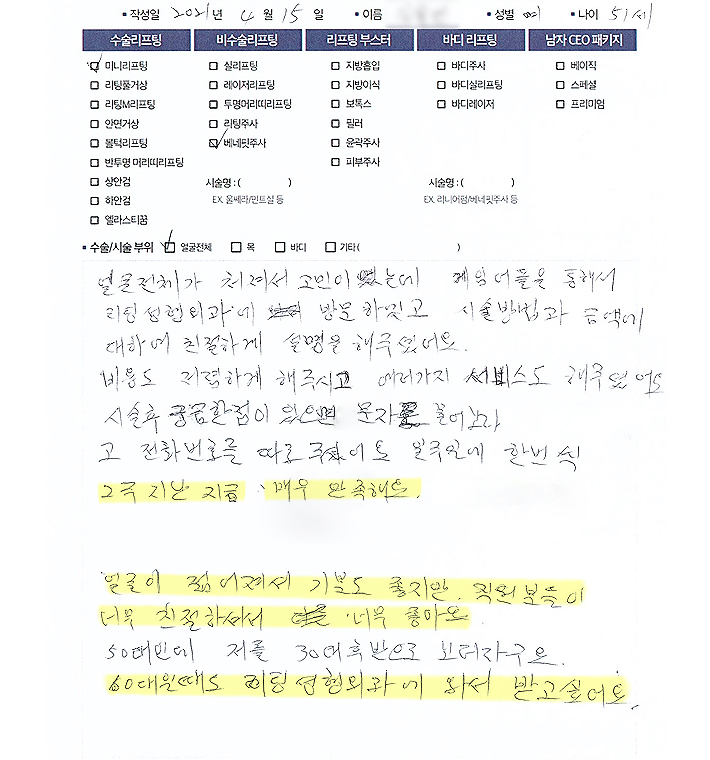 • 작성일 2021년 4월 15일 • 이름 • 성별 여 • 나이 51세
수술리프팅 비수술리프팅 리프팅 부스터 바디 리프팅 남자 CEO 패키지
미니리프팅 실리프팅 지방흡입 바디주사 베이직
리팅풀거상 레이저리프팅 지방이식 바디실리프팅 스페셜
리팅M리프팅 투명머리띠리프팅 보톡스 바디레이저 프리미엄
안면거상 리팅주사 필러
볼턱리프팅 베네핏주사 윤곽주사
반투명 머리띠리프팅 피부주사
상안검 시술명 : ( ) 시술명 : ( )
하안검 EX. 울쎄라/민트실 등 EX. 리니어펌/베네핏주사 등
엘라스티꿈
• 수술/시술 부위 얼굴전체 목 바디 기타( )
얼굴전체가 쳐져서 고민이 였는데 통해서
리팅성형외과에 방문하였고 시술방법과 금액에
대하여 친절하게 설명을 해주셨어요.
비용도 저렴하게 해주시고 여러가지 서비스도 해주셨어요
시술후 궁금한점이 있으면 문자로 물어보라
고 전화번호를 따로 주셨어요 일주일에 한번씩
2주 지난 지금 매우 만족해요.
얼굴이 젊어져서 기분도 좋지만. 직원분들이
너무 친절하셔서 너무 좋아요
50대인데 저를 30대후반으로 보더라구요.
60대일때도 리팅성형외과에 와서 받고싶어요.